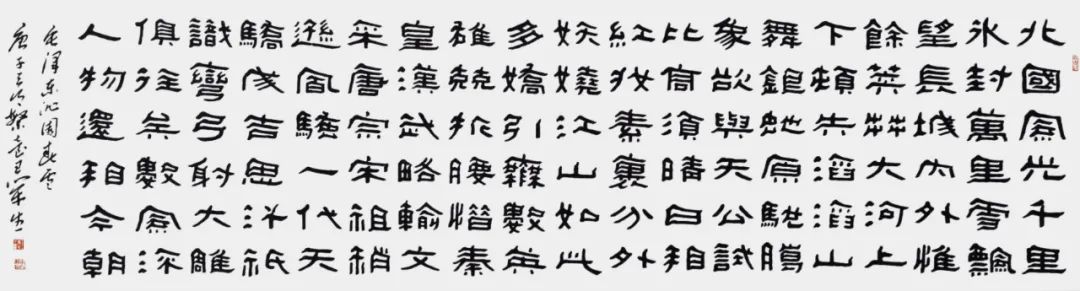 北國風光千里
冰封萬里雪飄
望長城內外惟
餘莽莽大河上
下頓失滔滔山
舞銀蛇原馳臘
象欲與天公試
比高須晴日看
紅妝素裹分外
妖嬈江山如此
多嬌引無數英
雄競折腰惜秦
皇漢武略輸文
采唐宗宋祖稍
遜風騷一代天
驕成吉思汗祇
識彎弓射大雕
俱往矣數風流
人物還看今朝
毛澤東沁園春雪
庚子